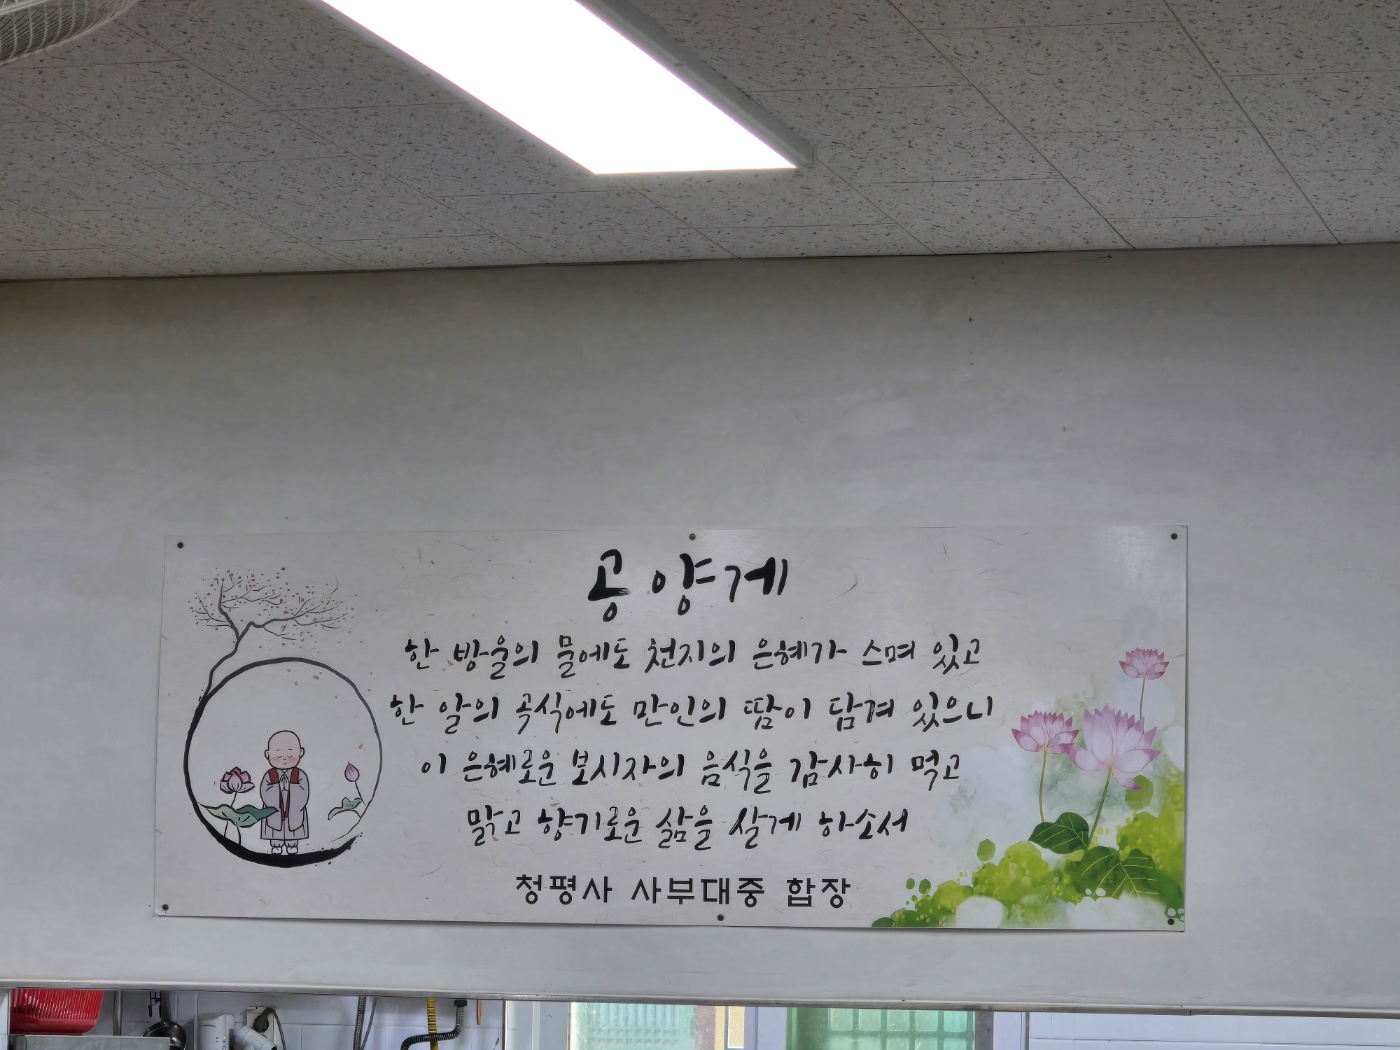 공양게
한 방울의 물에도 천지의 은혜가 스며 있고
한 알의 곡식에도 만인의 땀이 담겨 있으니
이 은혜로운 보시자의 음식을 감사히 먹고
맑고 향기로운 삶을 살게 하소서
청평사 사부대중 합장